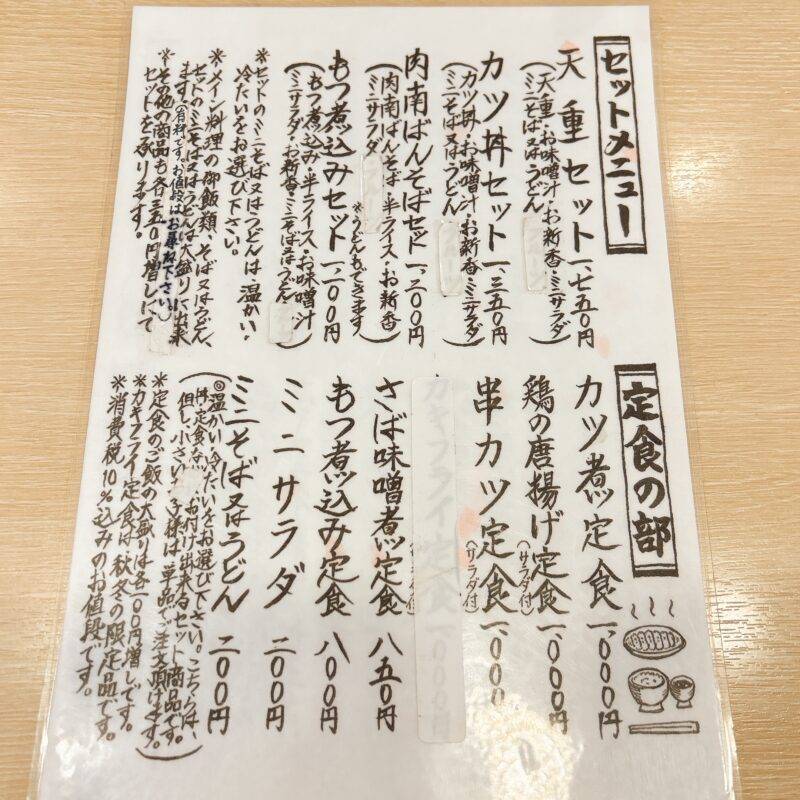 セットメニュー
天重セット 一、七五〇円
（天重・お味噌汁・お新香・ミニサラダ
ミニそば又はうどん）
カツ丼セット 一、三五〇円
（カツ丼・お味噌汁・お新香・ミニサラダ
ミニそば又はうどん）
肉南ばんそばセット 一、二〇〇円
（肉南ばんそば・半ライス・お新香
ミニサラダ）
＊うどんもできます
もつ煮込みセット 一、二〇〇円
（もつ煮込み・半ライス・お味噌汁
ミニサラダ・お新香・ミニそば又はうどん）
＊セットのミニそば又はうどんは、温かい・
冷たいをお選び下さい。
＊メイン料理の御飯類、そば又はうどん、
セットのミニそば又はうどんは大盛りに出来
ます。（有料です。お値段はお尋ね下さい。）
＊その他の商品も各三五〇円増しにて
セットを承ります。
定食の部
カツ煮定食 一、〇〇〇円
鶏の唐揚げ定食 一、〇〇〇円
（サラダ付）
串カツ定食 一、〇〇〇円
（サラダ付）
カキフライ定食 一、〇〇〇円
さば味噌煮定食 八五〇円
もつ煮込み定食 八〇〇円
ミニサラダ 二〇〇円
ミニそば又はうどん 二〇〇円
（◎温かい・冷たいをお選び下さい。こちらは、
＊定食のご飯の大盛りは各一〇〇円増しです。
＊カキフライ定食は、秋冬の限定品です。
＊消費税10%込みのお値段です。